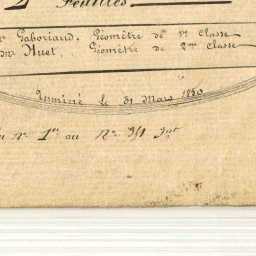 2 Feuilles
Gaboriaud, Géomètre de 1e Classe
Huet, Géomètre de 2me Classe
Terminé le 31 Mars 1850
du No 1er au No 391 Int